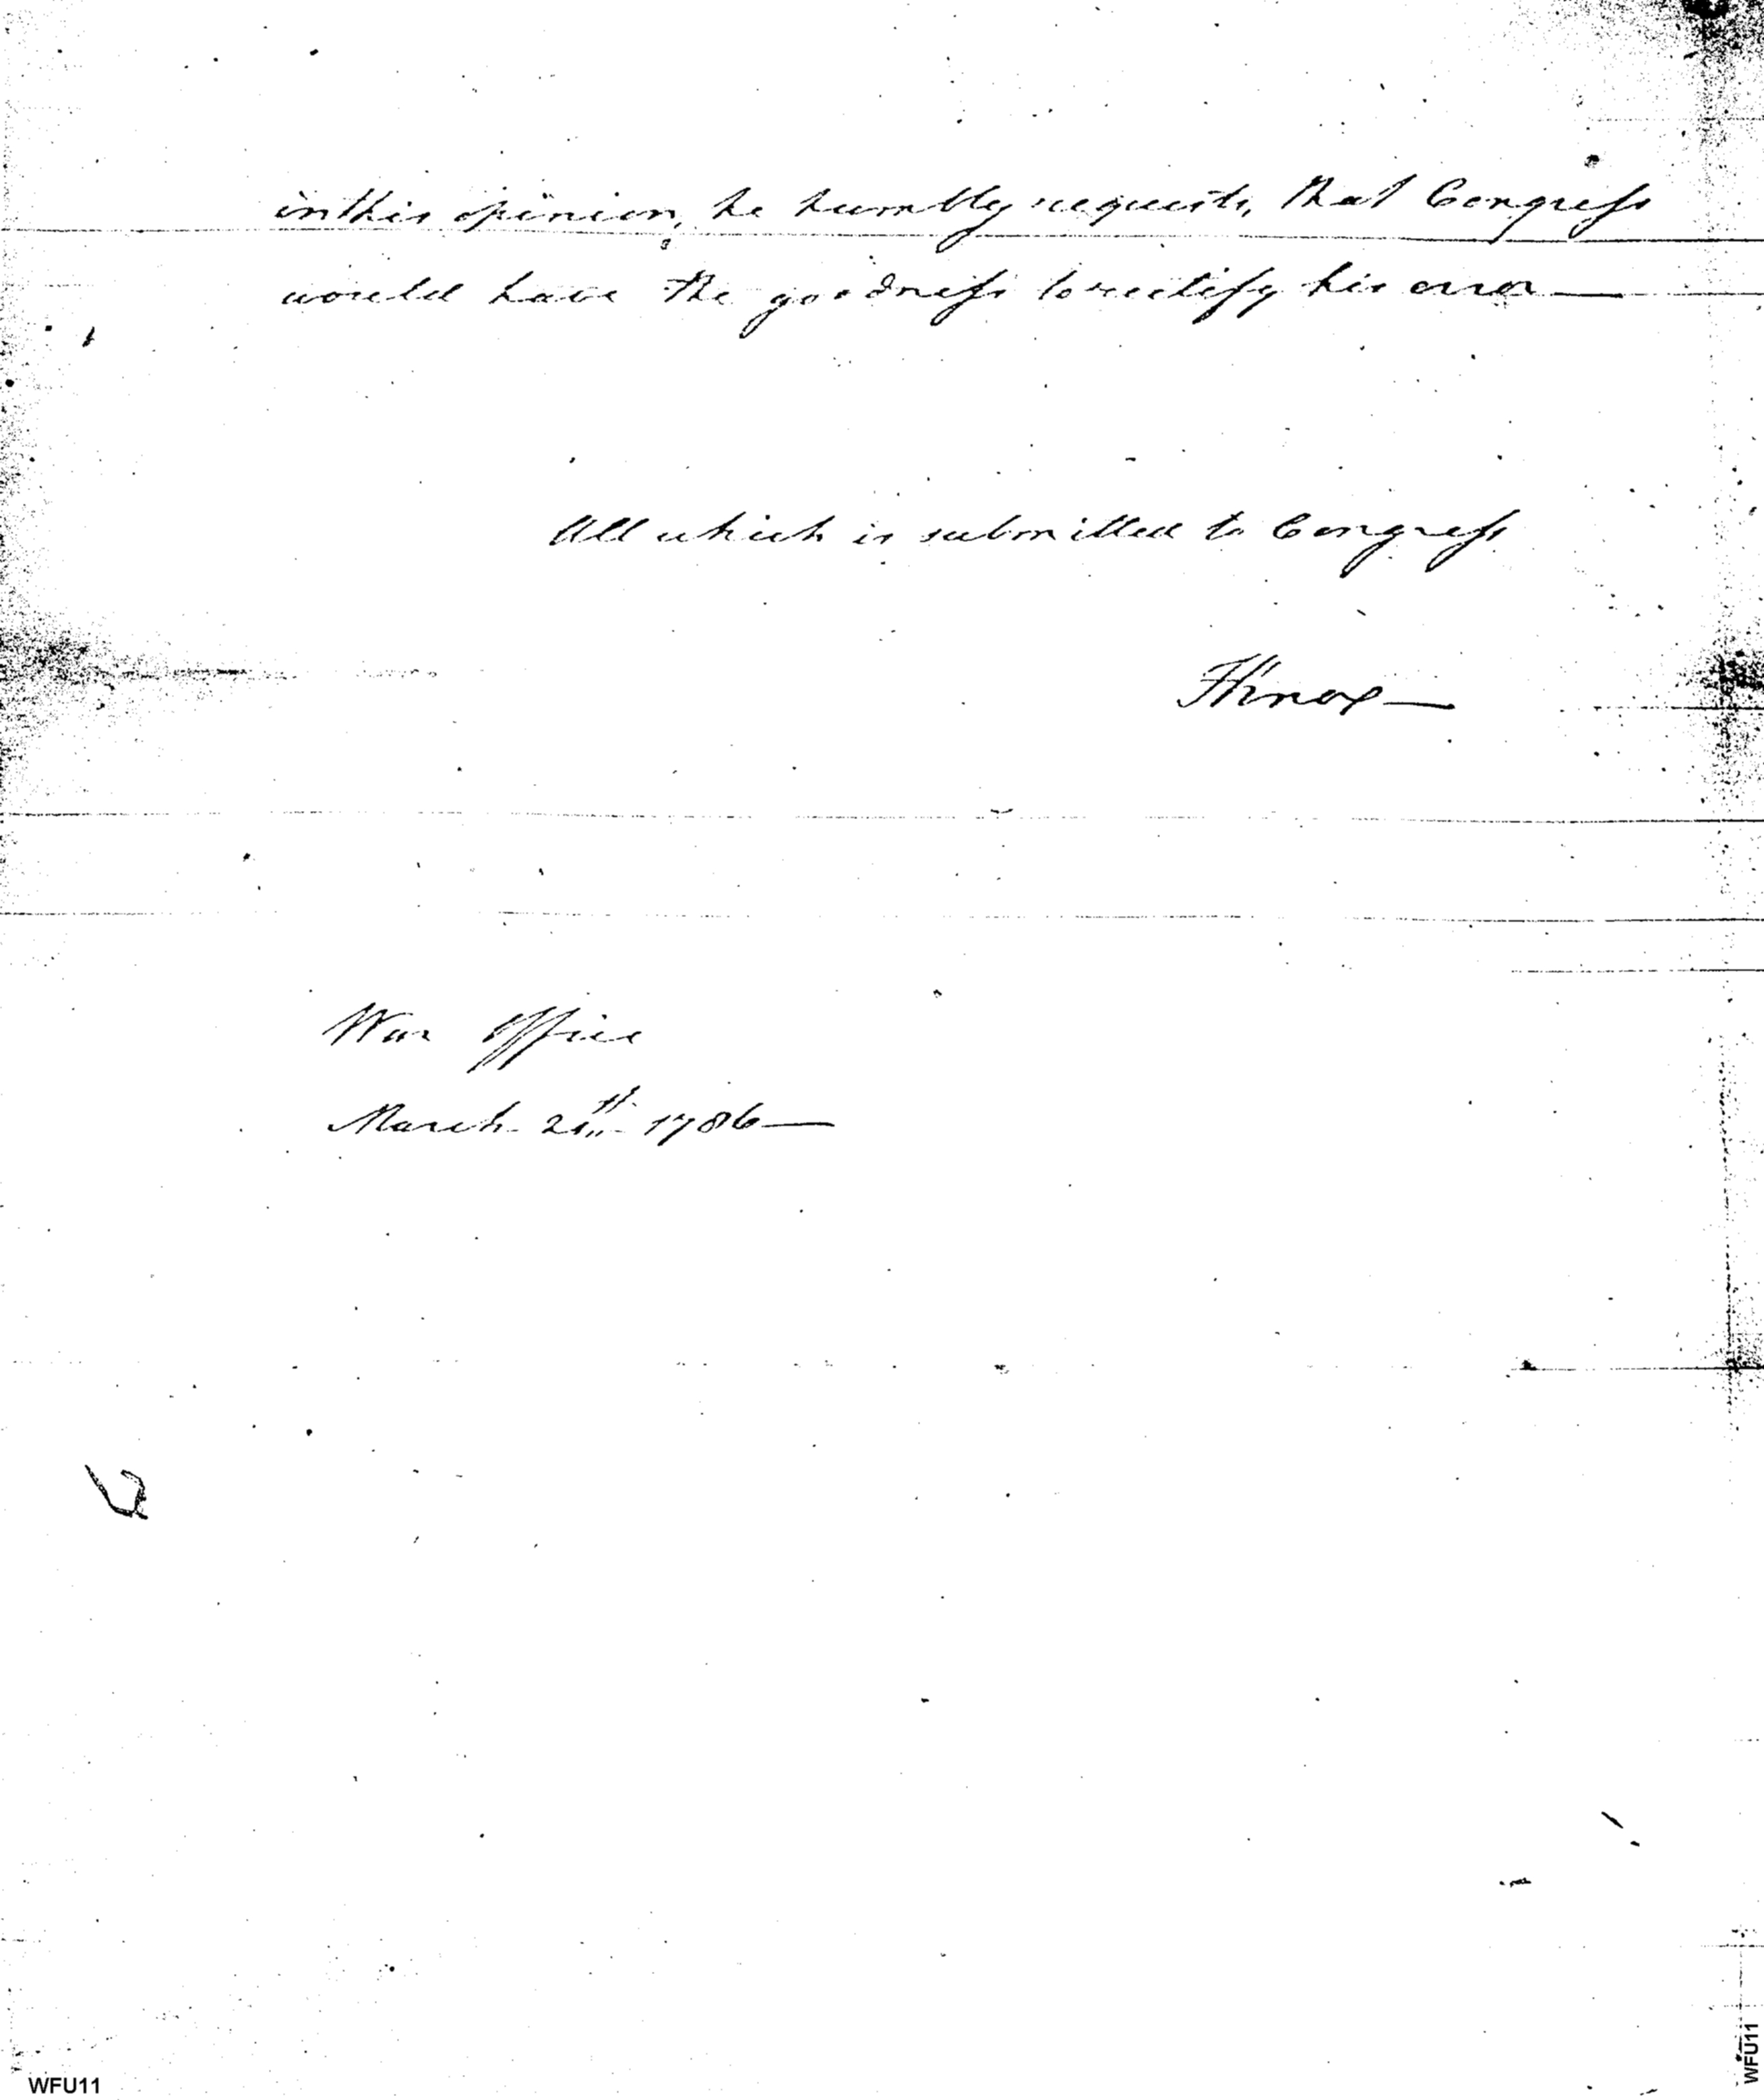 in this opinion, he humbly requests, that Congress
would have the goodness to rectify his error —
All which is submitted to Congress
HKnox —
War Office
March 21th 1786 —
WFU11
WFU11